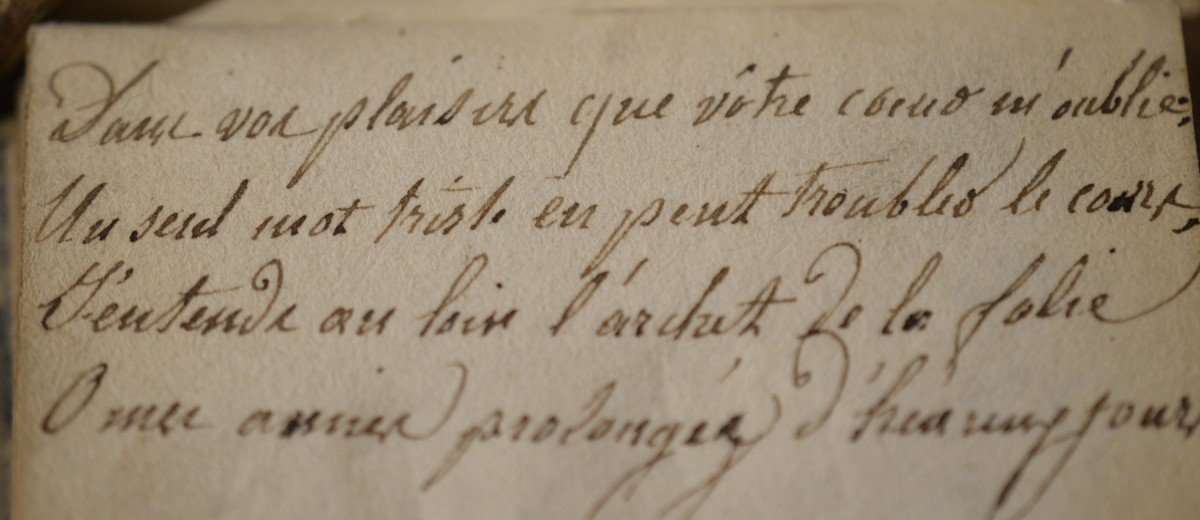 Dans vos plaisirs que vôtre coeur m'oublie;
Un seul mot triste en peut troubler le cours,
J'entends au loin l'archet de la folie
O mes amis prolongez d'heureux jours